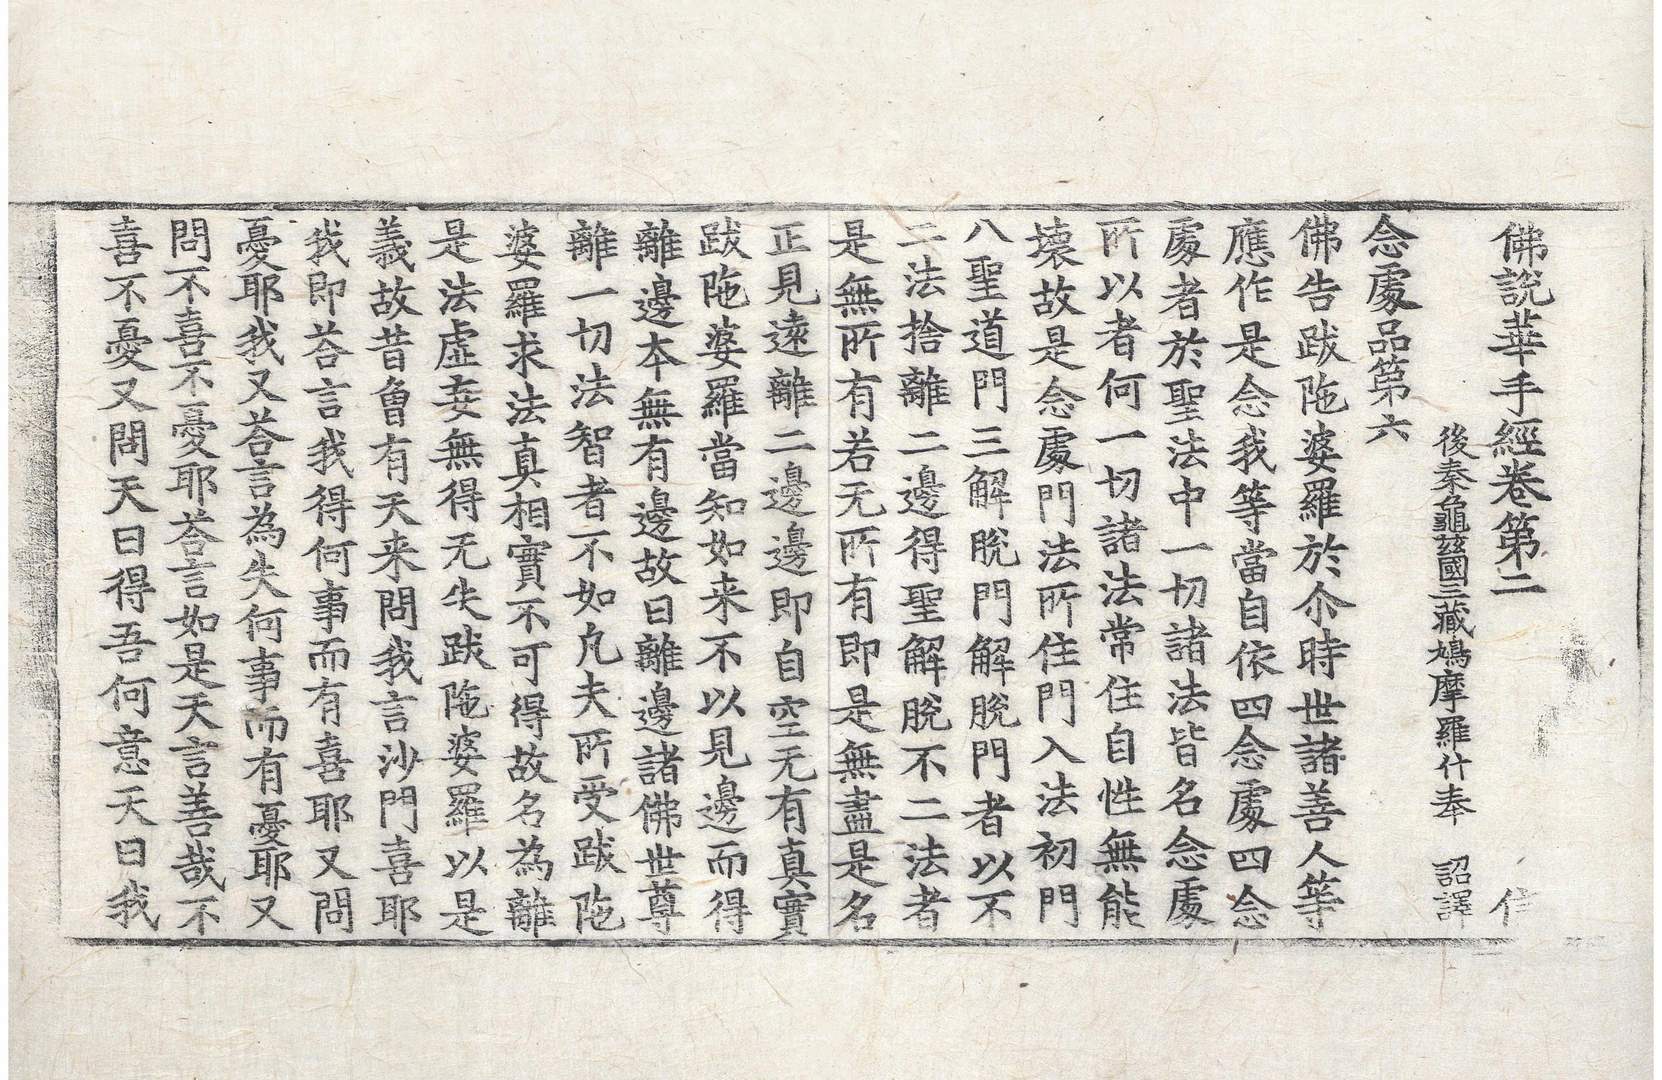 佛說華手經卷第二　信
後秦龜茲國三藏鳩摩羅什奉　詔譯
念處品第六
佛告跋陁婆羅於尒時世諸善人等
應作是念我等當自依四念處四念
處者於聖法中一切諸法皆名念處
所以者何一切諸法常住自性無能
壞故是念處門法所住門入法初門
八聖道門三解脫門解脫門者以不
二法捨離二邊得聖解脫不二法者
是無所有若无所有即是無盡是名
正見遠離二邊邊即自空无有真實
跋陁婆羅當知如来不以見邊而得
離邊本無有邊故曰離邊諸佛世尊
離一切法智者不如凢夫所受跋陁
婆羅求法真相實不可得故名為離
是法虛妄無得无失跋陁婆羅以是
義故昔曾有天来問我言沙門喜耶
我即荅言我得何事而有喜耶又問
憂耶我又荅言為失何事而有憂耶又
問不喜不憂耶荅言如是天言善哉不
喜不憂又問天曰得吾何意天曰我